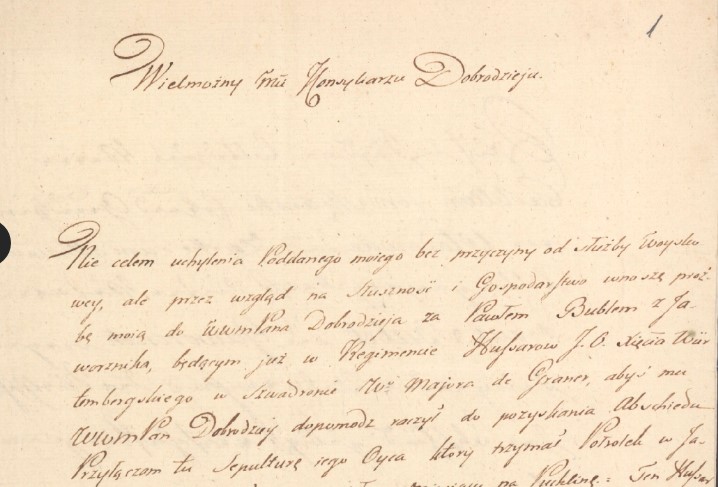 1
Wielmożny Mci Konsyliarzu Dobrodzieju.
Nie celem uchylenia Poddanego moiego bez przyczyny od służby Woysko
wey, ale przez wzgląd na słuszność i Gospodarstwo wnoszę proź-
bę moią do WWmPana Dobrodzieja za Pawłem Bublem z Ja-
wornika, będącym już w Regimencie Hussarow J.O. Xięcia Wür
tembergskiego w Szwadronie Major de Graner, abyś mu
WWmPan Dobrodziey dopomodz raczył do pozyskania Abschiedu
Przyłączam tu Sepulturę iego Oyca który trzymał Potrolek w Ja-
na Puchlinę: Ten Hussar